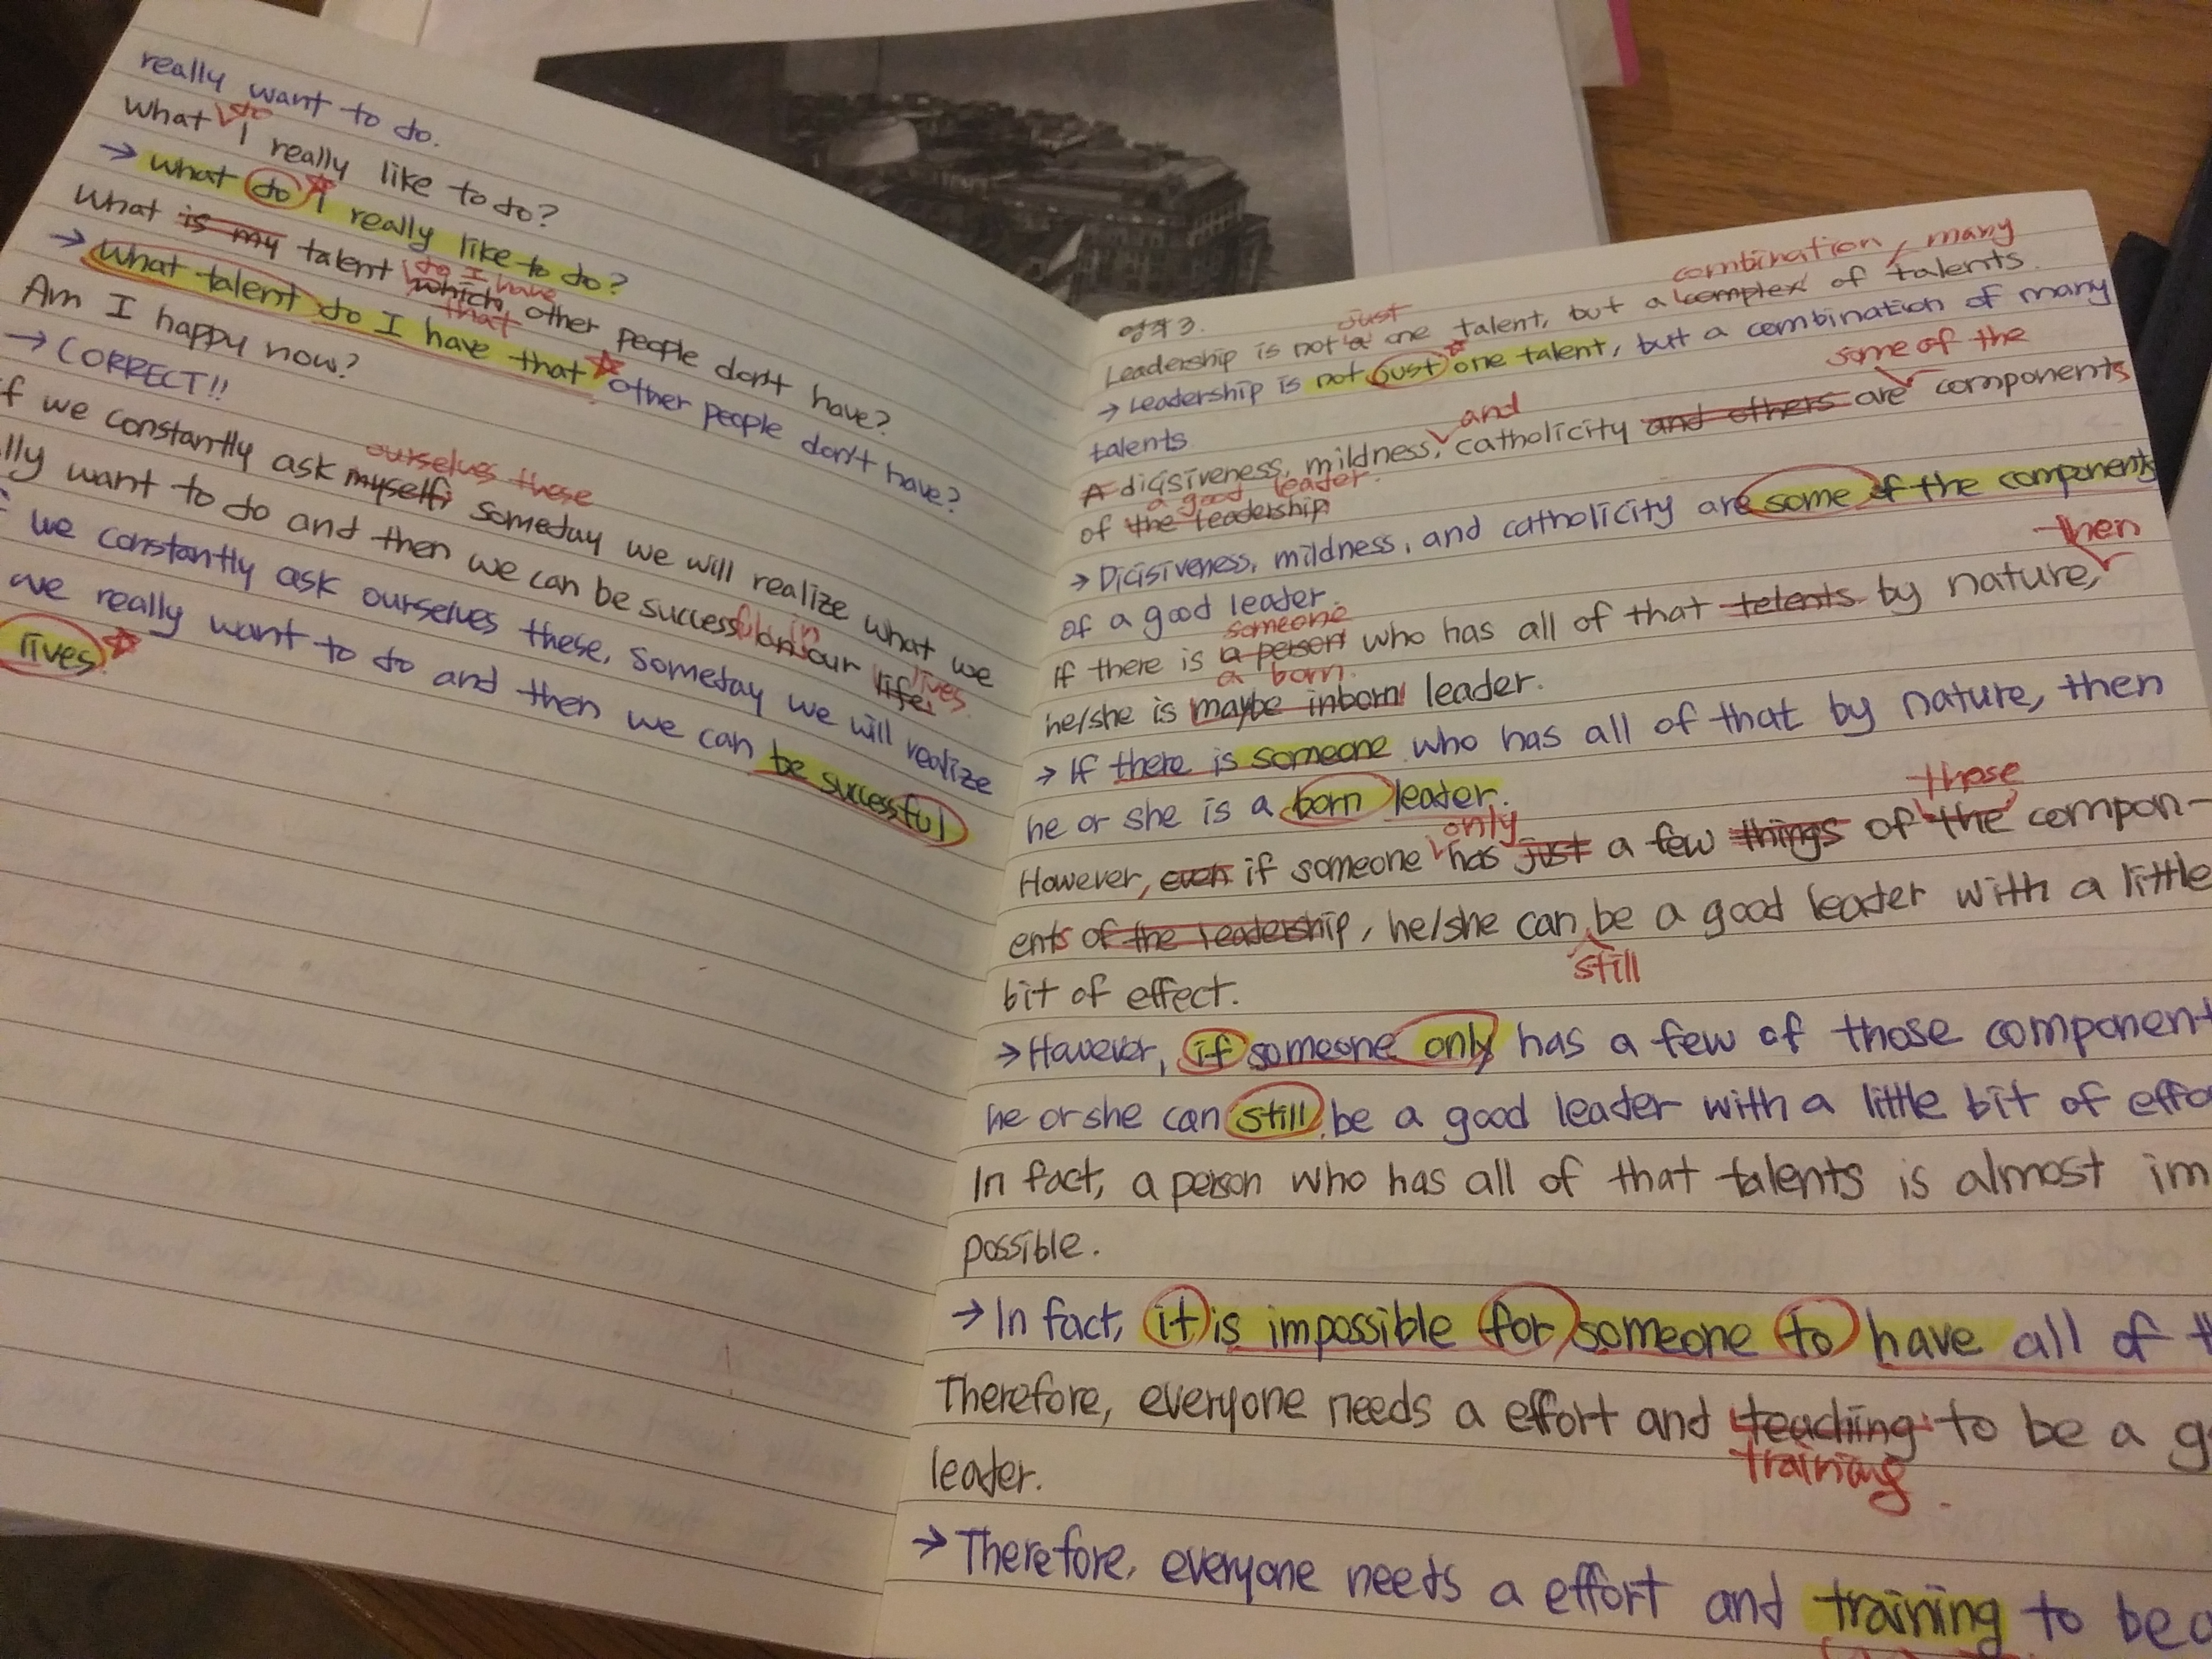 really want to do.
do
What I really like to do?
→ What do I really like to do?
What is my talent which other people don't have?
do I have
that
→ What talent do I have that other people don't have?
Am I happy now?
→ CORRECT!!
f we constantly ask myself, someday we will realize what we
ourselves these
lly want to do and then we can be success on our life.
ful in
lives.
we constantly ask ourselves these, someday we will realize
we really want to do and then we can be successful
lives
영작 3.
combination, many
just
Leadership is not a one talent, but a complex of talents.
→ Leadership is not just one talent, but a combination of many
talents.
and
some of the
A dicisiveness, mildness, catholicity and others are components
a good leader.
of the leadership
→ Dicisiveness, mildness, and catholicity are some of the components
of a good leader.
then
someone
If there is a person who has all of that telents by nature,
a born
he/she is maybe inborn leader.
→ If there is someone who has all of that by nature, then
he or she is a born leader.
only
those
However, even if someone has just a few things of the compon-
ents of the leadership, he/she can be a good leader with a little
still
bit of effect.
→ However, if someone only has a few of those component
he or she can still be a good leader with a little bit of effo
In fact, a person who has all of that talents is almost im
possible.
→ In fact, it is impossible for someone to have all of t
Therefore, everyone needs a effort and teaching to be a g
training
leader.
→ Therefore, everyone needs a effort and training to be a